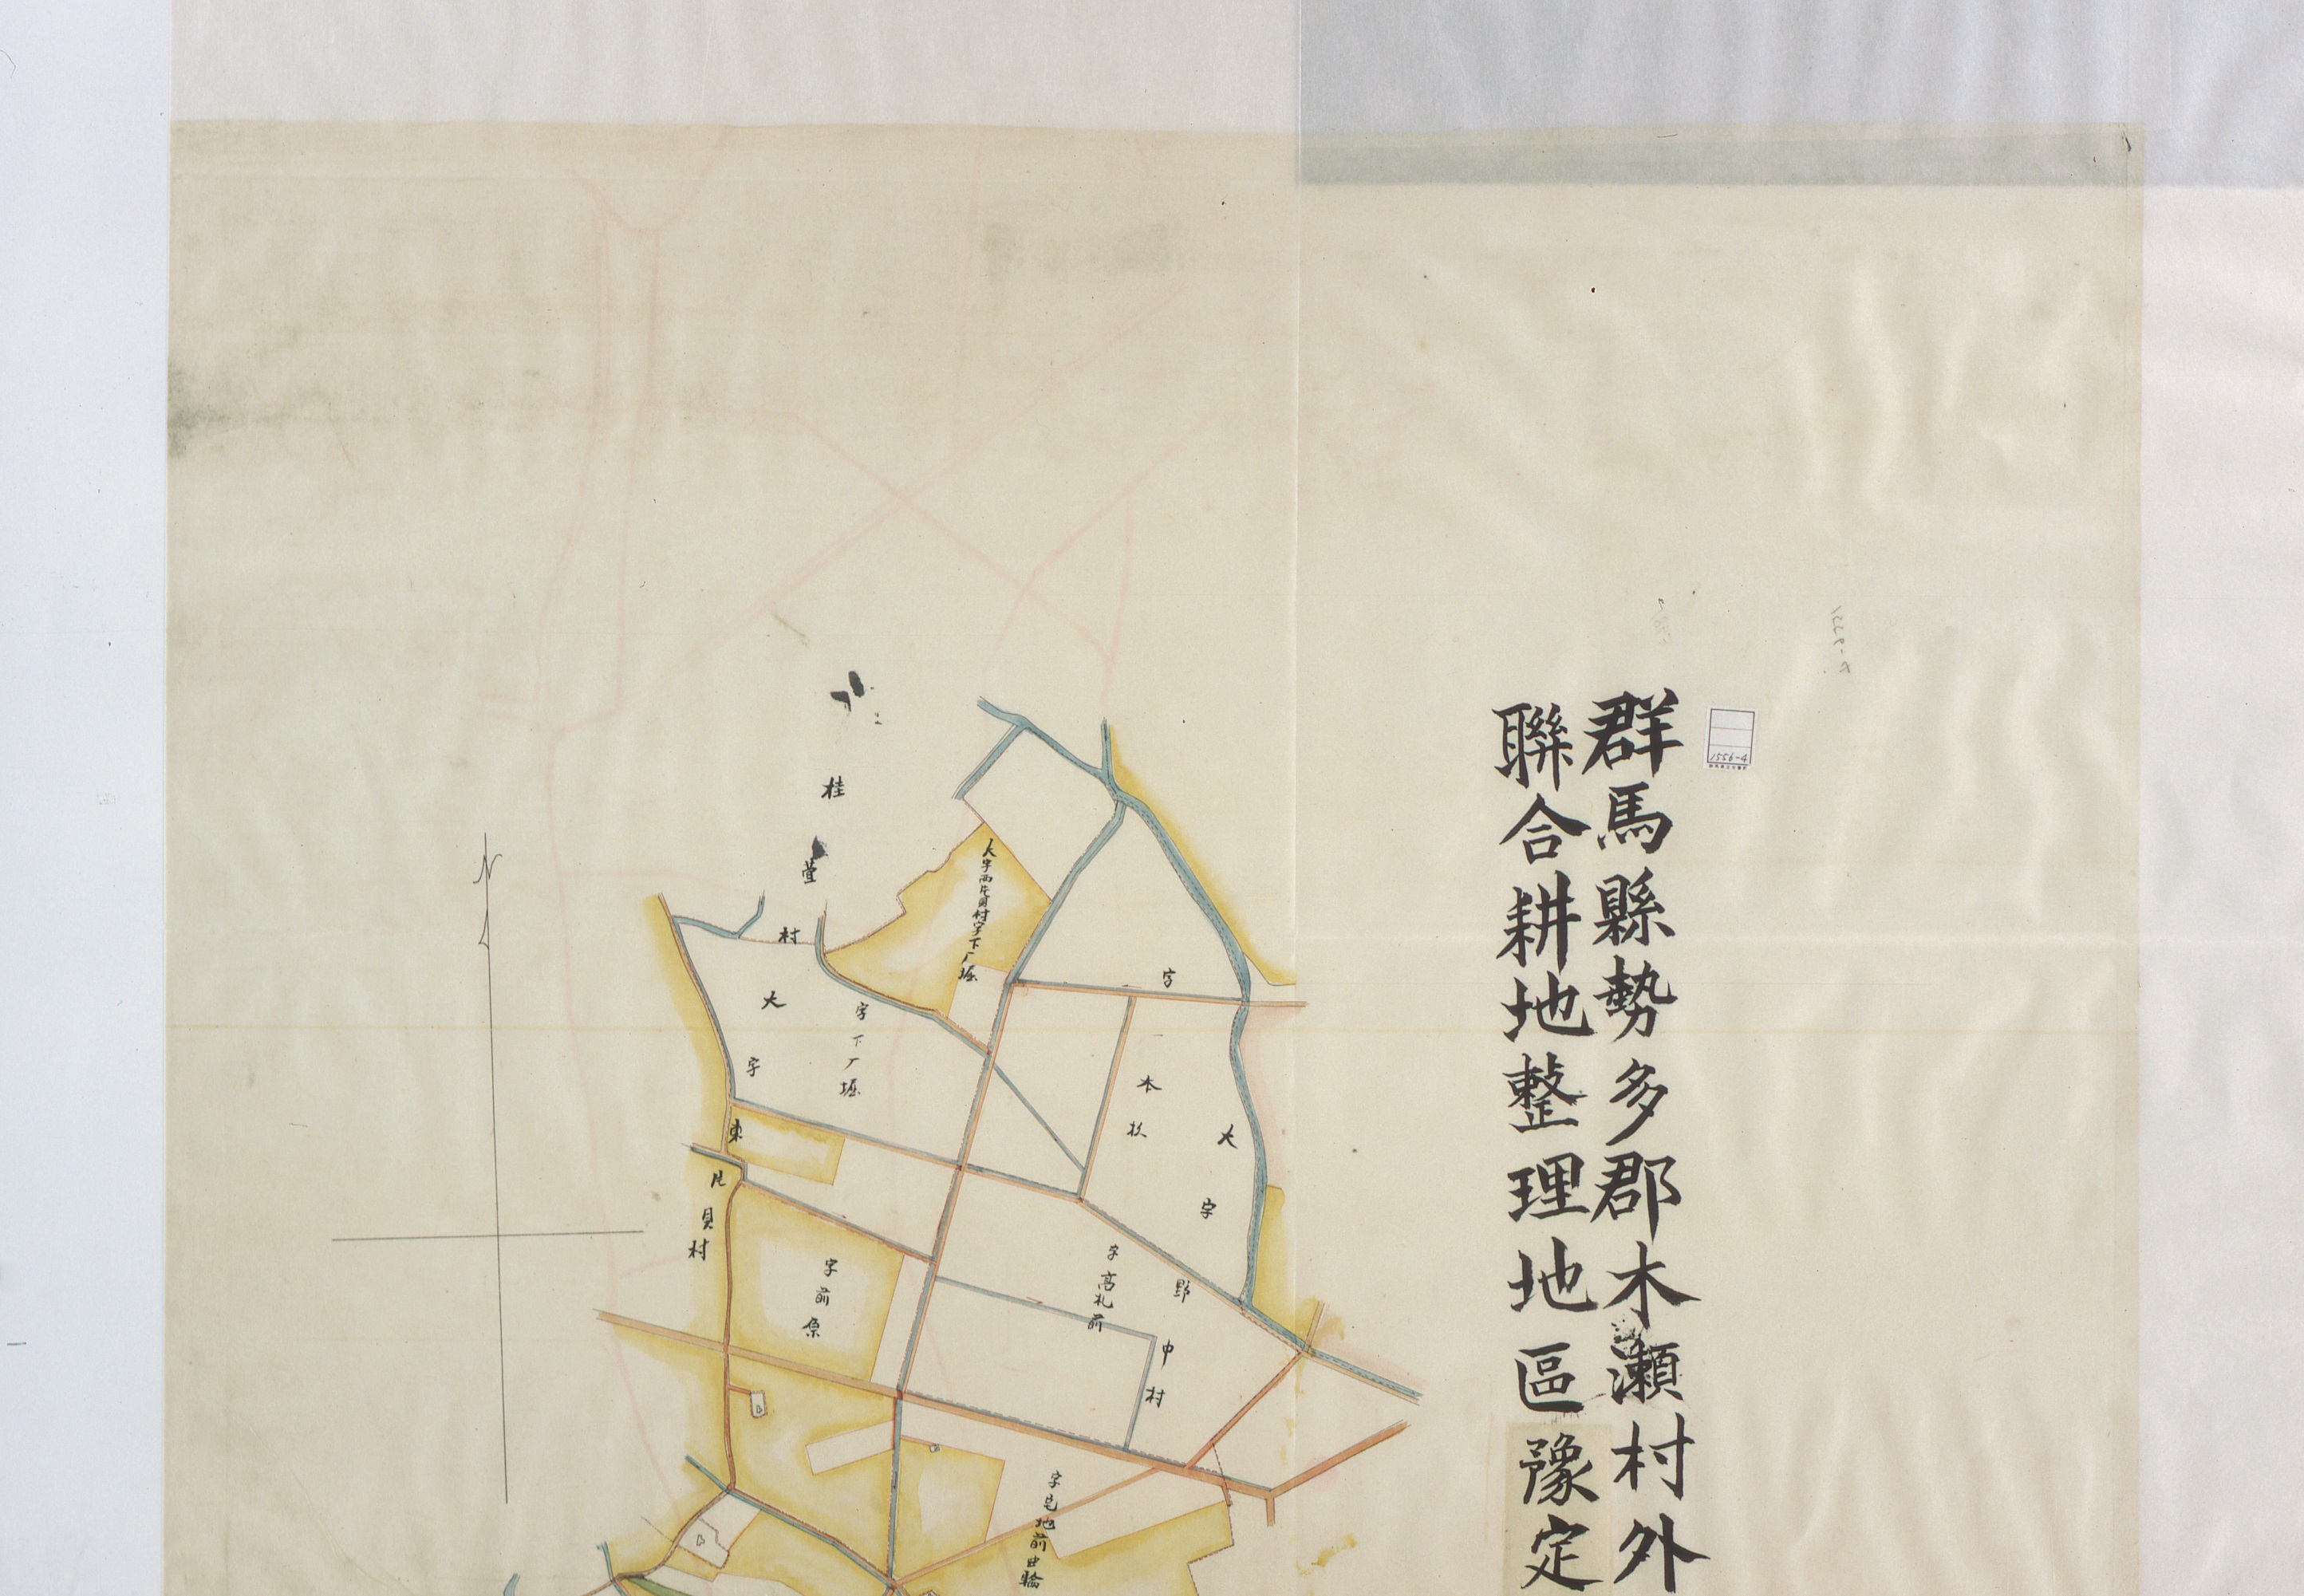 群馬縣勢多郡木瀬村外
聯合耕地整理地區豫定
1556-4
N
桂萱村
大字東片貝村
大字西片貝村字下厂堀
字下厂堀
字本杦
大字野中村
字高札前
字前原
字宅地前曲輪